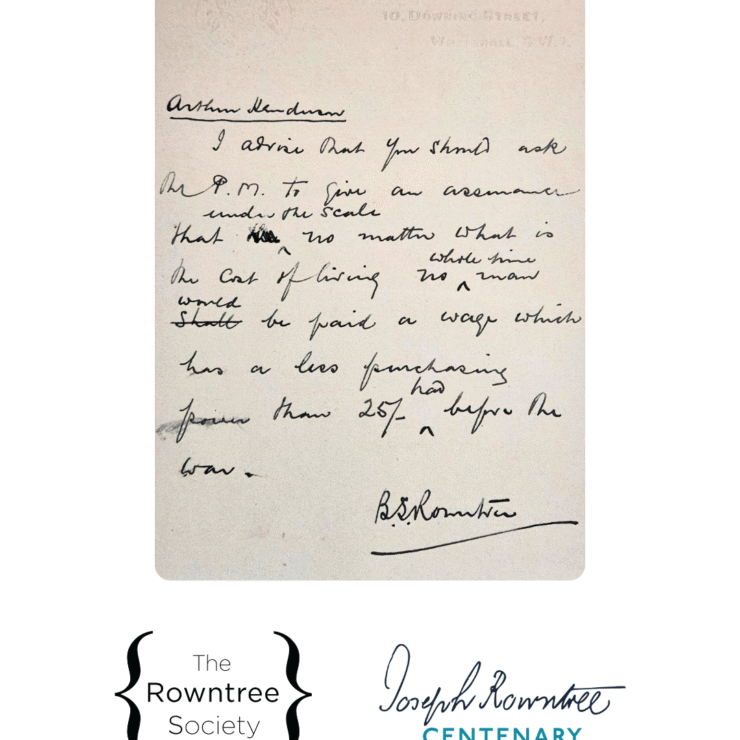 10, DOWNING STREET,
WHITEHALL S.W.1.
Arthur Henderson
I advise that you should ask
the P.M. to give an assurance
under the scale
that no matter what is
whole time
the cost of living no ‸ man
would
shall be paid a wage which
has a less purchasing
had
power than 25/- ‸ before the
war.
B.S. Rowntree
The
Rowntree
Society
Joseph Rowntree
CENTENARY